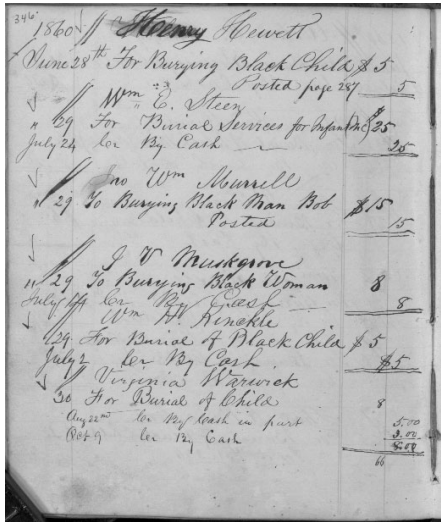 346
1860 Henry Hewett
June 28th For Burying Black Child $5
Posted page 287 5
Wm E. Steen
" 29 For Burial Services for Infant $25
July 24 Cr By Cash 25
Jno Wm Murrell
" 29 To Burying Black Man Bob $15
Posted 15
J V Muskgrove
" 29 To Burying Black Woman 8
July Cr By Cash 8
Wm H. Hinckle
" 29 For Burial of Black Child $5
July 2 Cr By Cash $5
Virginia Warwick
30 For Burial of Child 8
Aug 22nd Cr By Cash in part 5.00
Oct 9 Cr By Cash 3.00
8.00
66